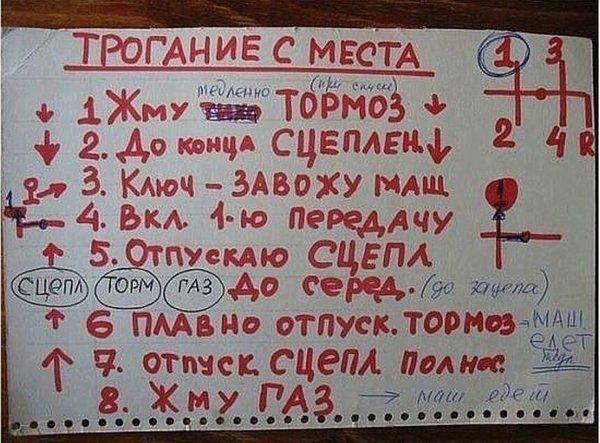 ТРОГАНИЕ С МЕСТА
1 3
2 4 R
медленно (при спуске)
1 Жму ТОРМОЗ
2. До конца СЦЕПЛЕН.
3. Ключ – ЗАВОЖУ МАШ
1
4. Вкл. 1-ю передачу
5. Отпускаю СЦЕПЛ
СЦЕПЛ ТОРМ ГАЗ До серед. (до зацепа)
6 плавно отпуск. ТОРМОЗ → МАШ.
едет
7. отпуск СЦЕПЛ полнос.
8. Жму ГАЗ → маш. едет